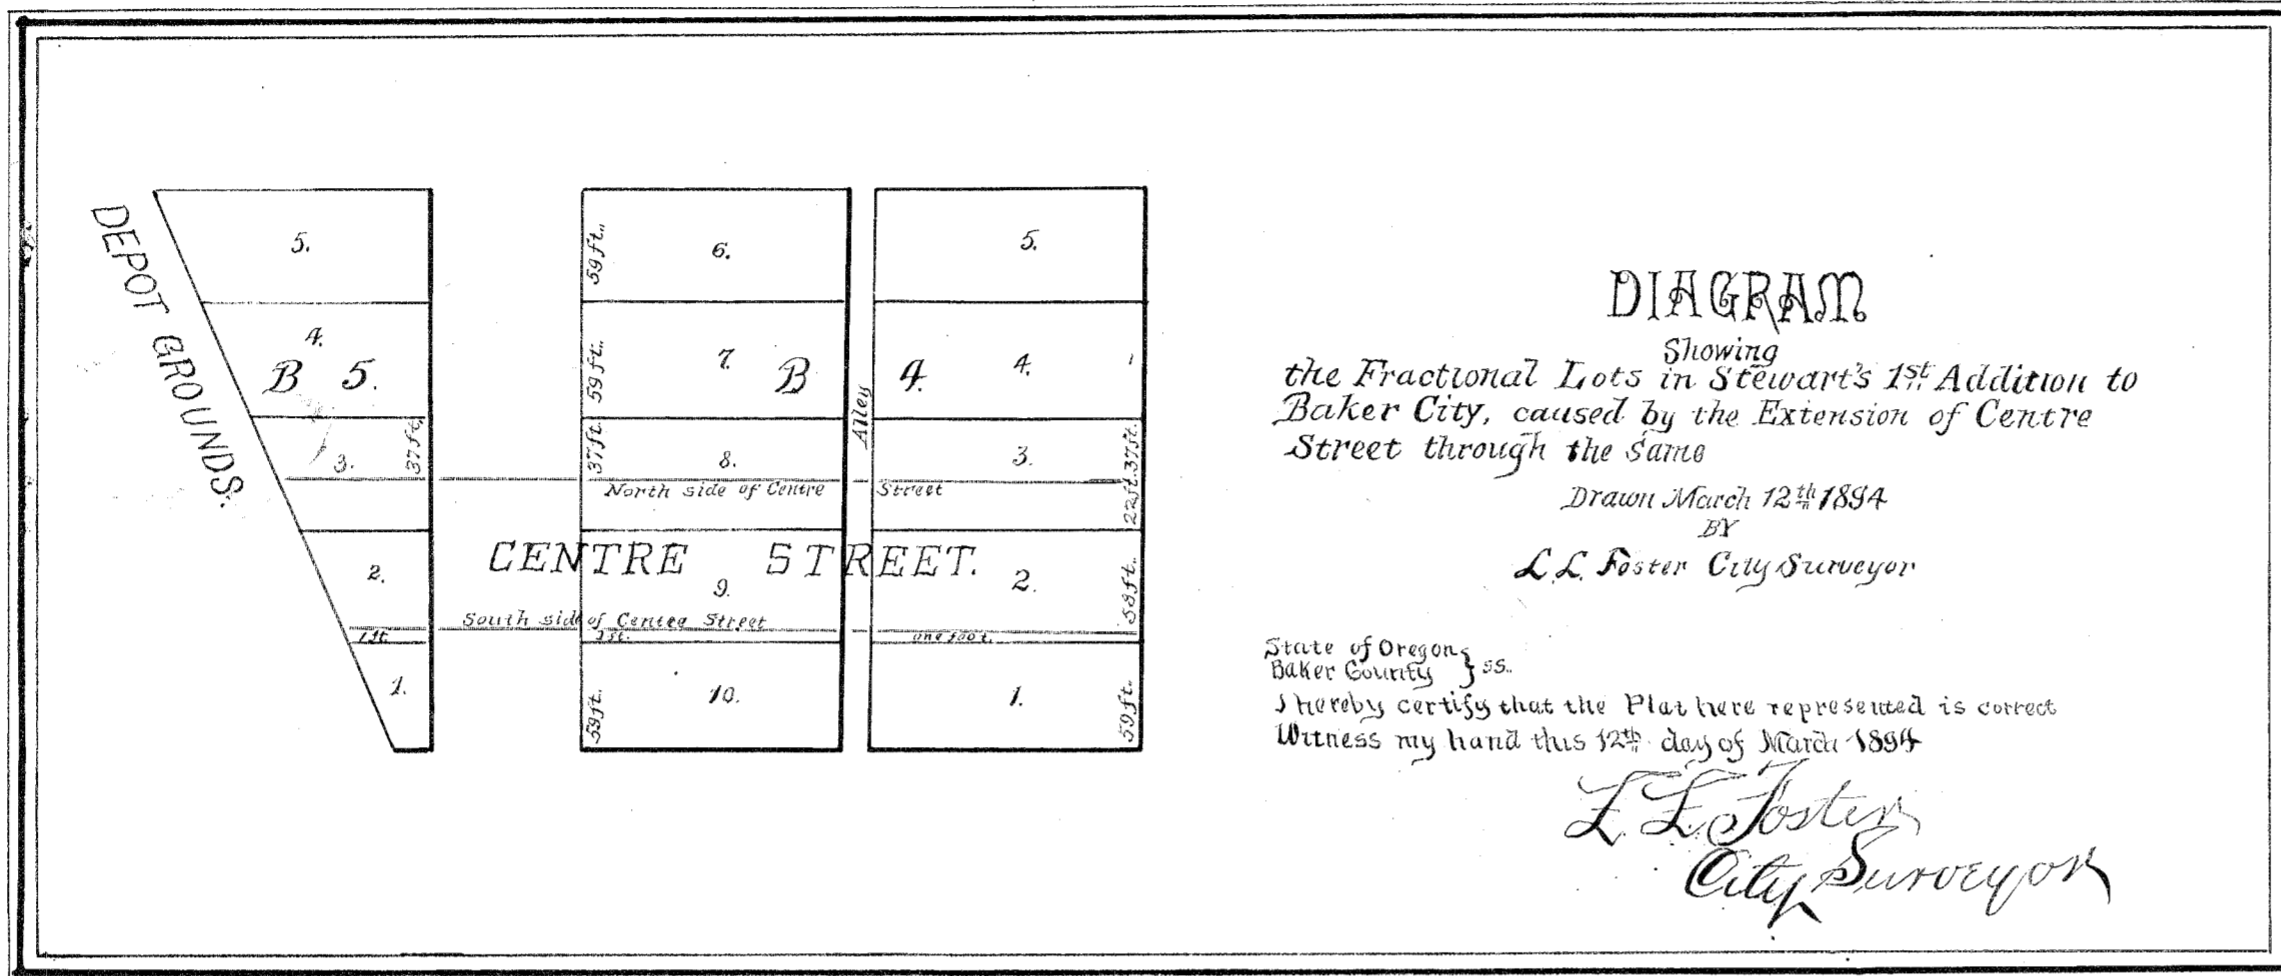 DEPOT GROUNDS.
5.
4.
B 5.
3.
37ft.
2.
1ft
1.
59ft.
6.
59ft.
7.
B 4.
37ft.
8.
Alley
North side of Centre Street
CENTRE STREET.
9.
South side of Centre Street
1ft.
one foot.
59ft.
10.
5.
4.
3.
37ft.
22ft.
2.
58ft.
1.
59ft.
DIAGRAM
Showing
the Fractional Lots in Stewart's 1st Addition to
Baker City, caused by the Extension of Centre
Street through the Same
Drawn March 12th 1894
BY
L.L. Foster City Surveyor
State of Oregon
Baker County } ss.
I hereby certify that the Plat here represented is correct
Witness my hand this 12th day of March 1894
L.L. Foster
City Surveyor